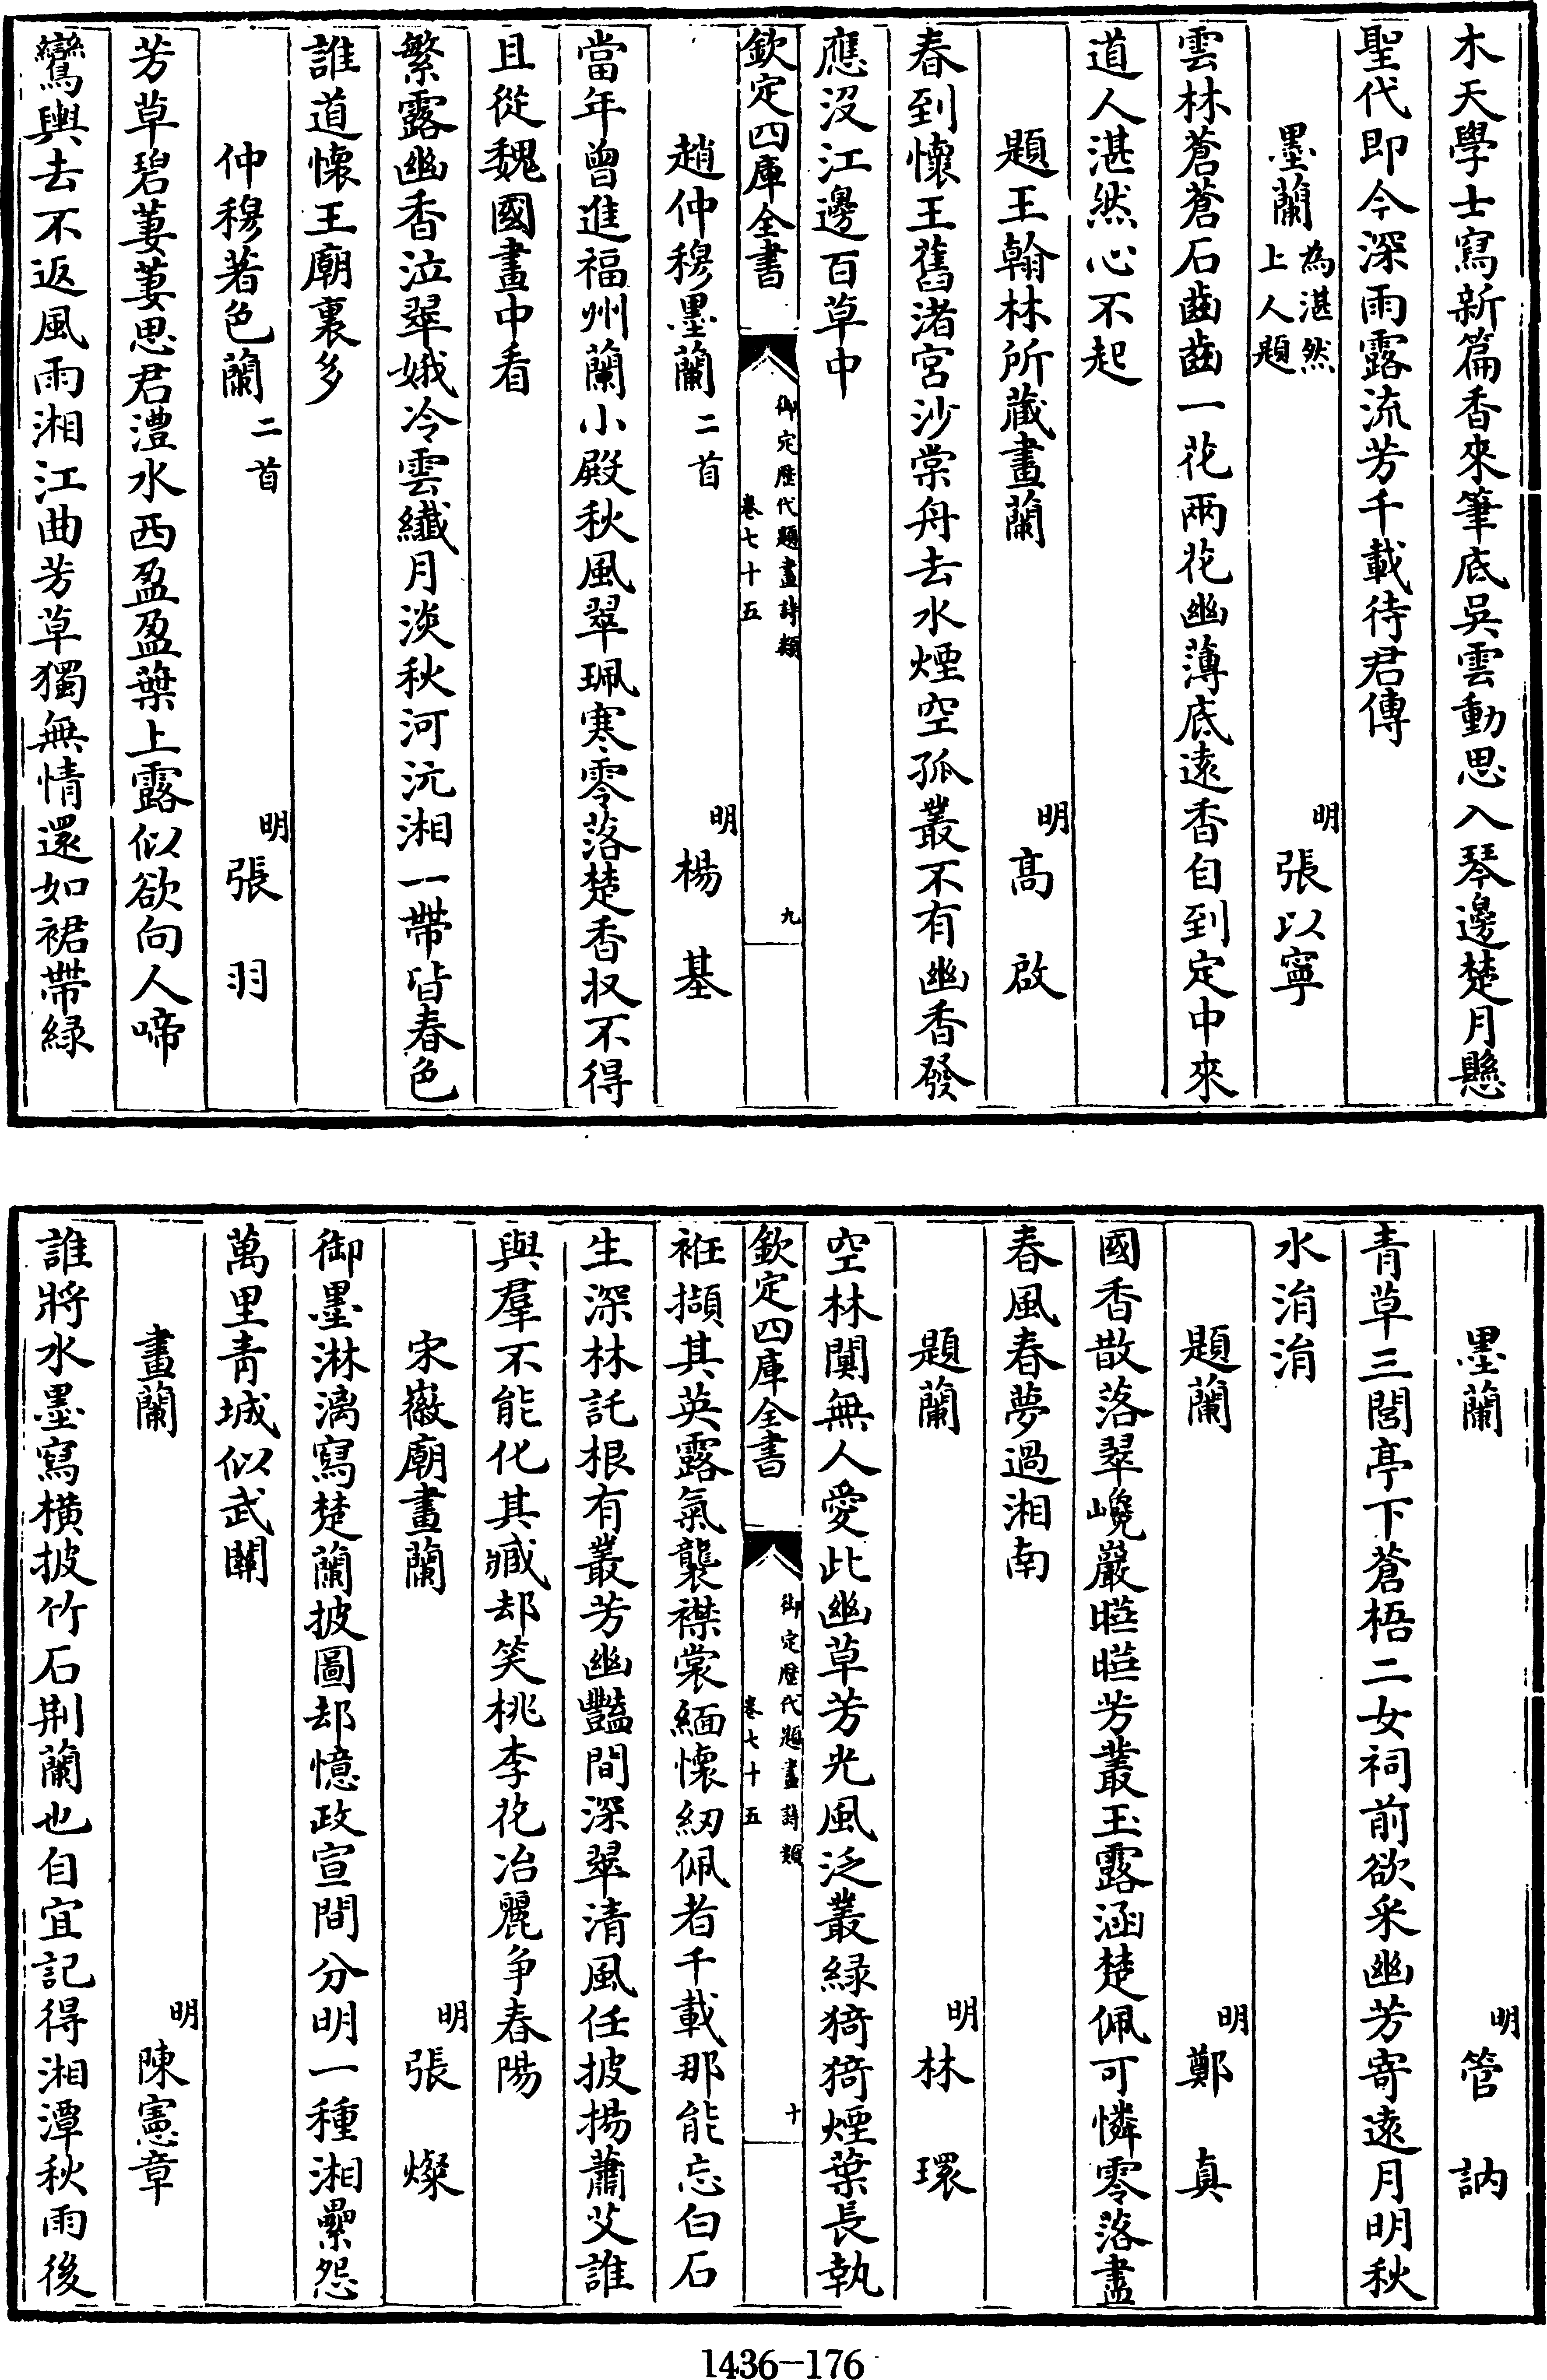 木天學士寫新篇香來筆底吳雲動思入琴邊楚月懸
聖代即今深雨露流芳千載待君傳
墨蘭為湛然上人題　明張以寧
雲林蒼蒼石齒齒一花兩花幽薄底遠香自到定中來
道人湛然心不起
題王翰林所藏畫蘭　明高啟
春到懷王舊渚宮沙棠舟去水煙空孤叢不有幽香發
應沒江邊百草中
欽定四庫全書　御定歷代題畫詩類卷七十五　九
趙仲穆墨蘭二首　明楊基
當年曾進福州蘭小殿秋風翠珮寒零落楚香収不得
且從魏國畫中看
繁露幽香泣翠娥冷雲纖月淡秋河沅湘一帶皆春色
誰道懷王廟裏多
仲穆著色蘭二首　明張羽
芳草碧萋萋思君澧水西盈盈葉上露似欲向人啼
鸞輿去不返風雨湘江曲芳草獨無情還如裙帶緑
墨蘭　明管訥
青草三閭亭下蒼梧二女祠前欲采幽芳寄遠月明秋
水涓涓
題蘭　明鄭真
國香散落翠巉巖曖曖芳叢玉露涵楚佩可憐零落盡
春風春夢過湘南
題蘭　明林環
空林闃無人愛此幽草芳光風泛叢緑猗猗煙葉長執
欽定四庫全書　御定歷代題畫詩類卷七十五　十
袵擷其英露氣襲襟裳緬懷紉佩者千載那能忘白石
生深林託根有叢芳幽豔間深翠清風任披揚蕭艾誰
與羣不能化其臧却笑桃李花冶麗争春陽
宋徽廟畫蘭　明張燦
御墨淋漓寫楚蘭披圖却憶政宣間分明一種湘纍怨
萬里青城似武關
畫蘭　明陳憲章
誰將水墨寫橫披竹石荆蘭也自宜記得湘潭秋雨後
1436-176